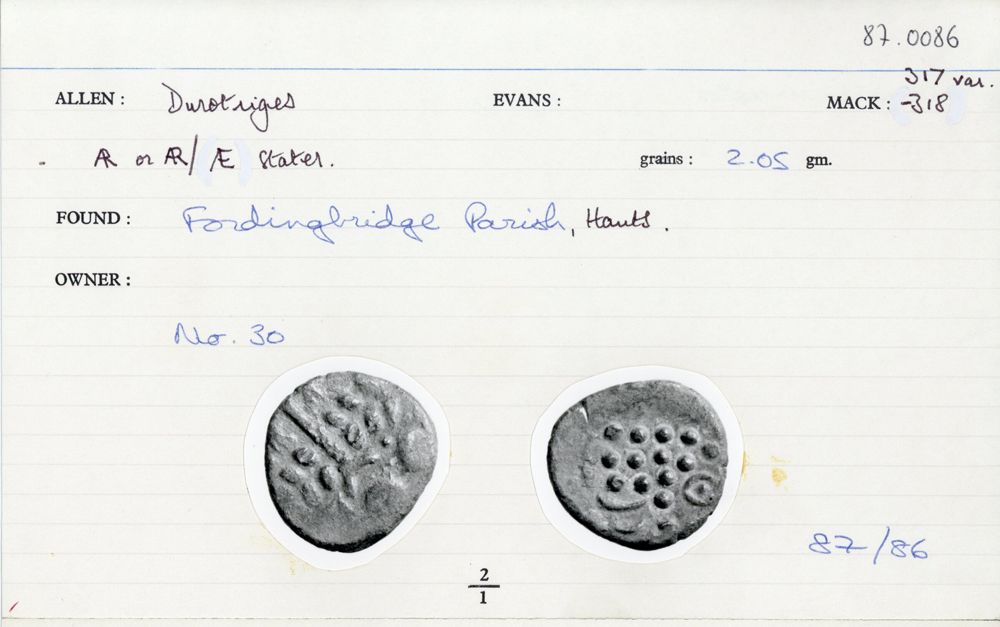 87.0086
317 var.
ALLEN : Durotriges EVANS : MACK : -318
. AR or AR/ Æ Stater. grains : 2.05 gm.
FOUND : Fordingbridge Parish, Hants.
OWNER :
No. 30
87/86
2
1